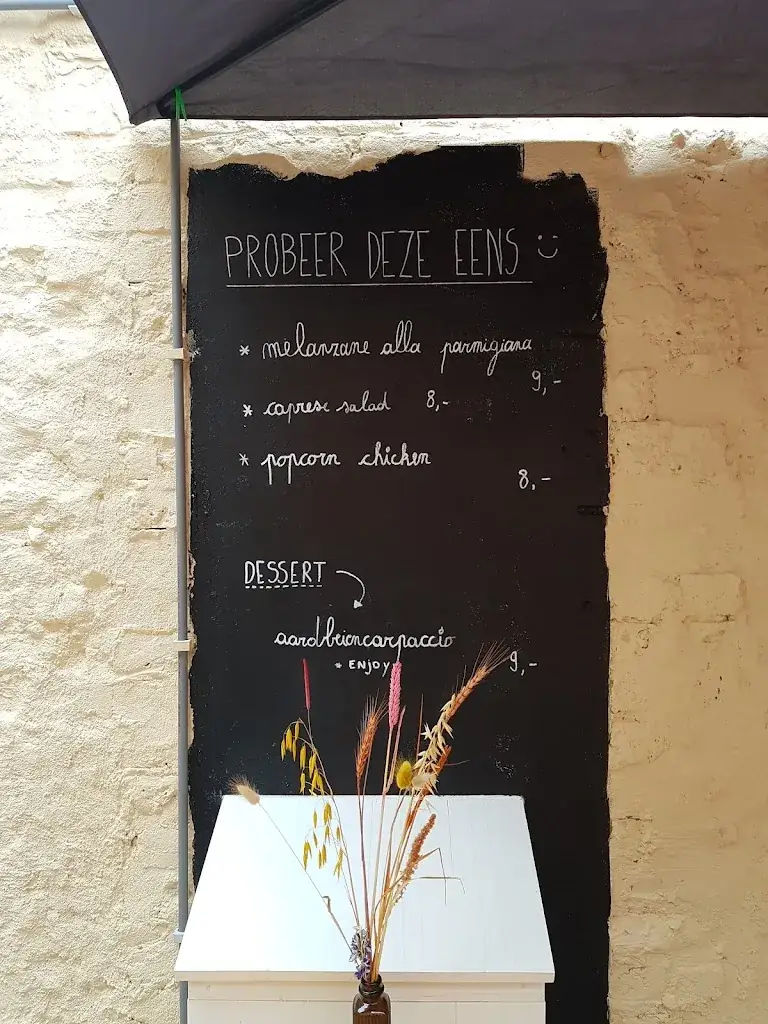 PROBEER DEZE EENS
* melanzane alla parmigiana
9,-
* caprese salad 8,-
* popcorn chicken
8,-
DESSERT
aardbeiencarpaccio
* ENJOY
9,-